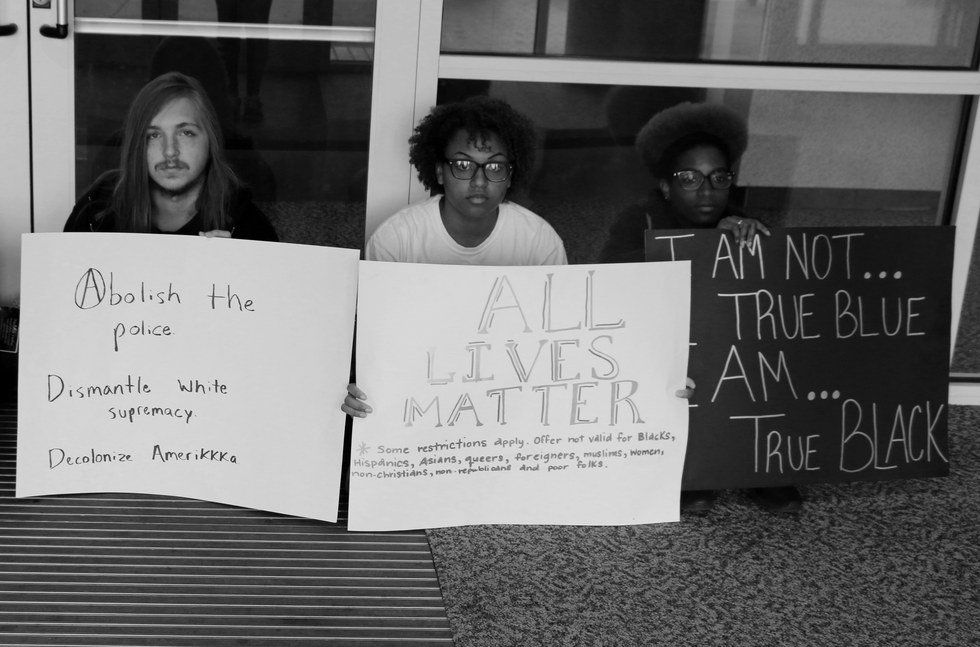 Abolish the
police.
Dismantle White
supremacy.
Decolonize Amerikkka
ALL
LIVES
MATTER
* Some restrictions apply. Offer not valid for Blacks,
Hispanics, Asians, queers, foreigners, muslims, women,
non-christians, non-republicans and poor folks.
I AM NOT...
TRUE BLUE
I AM...
TRUE BLACK